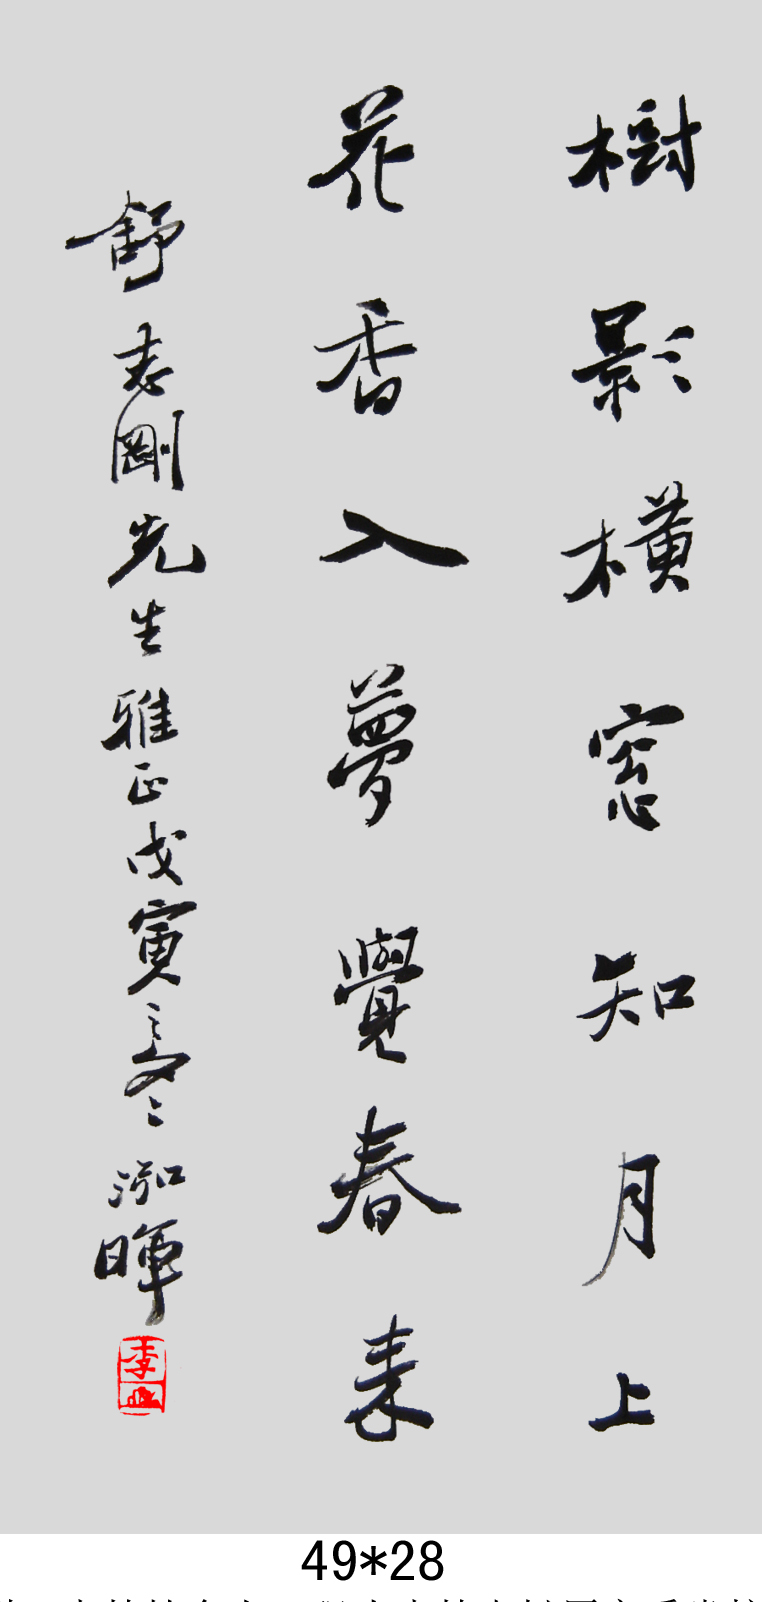 樹影橫窓知月上
花香入夢覺春來
舒志剛先生雅正戊寅之冬泓暉
李
49*28